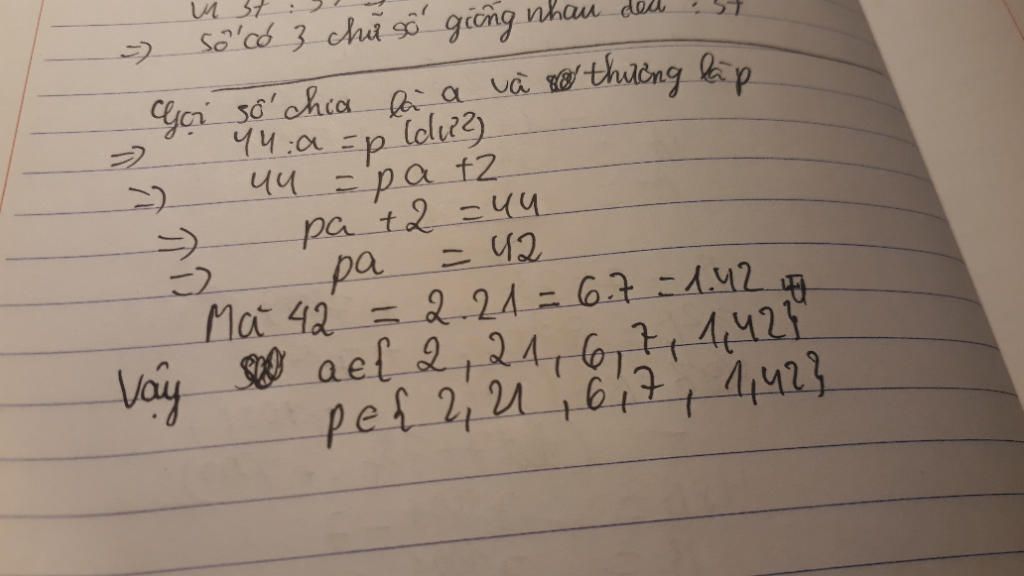 => Số có 3 chữ số giống nhau đều : 37
Gọi số chia là a và thương là p
=> 44 : a = p (dư 2)
=> 44 = pa + 2
=> pa + 2 = 44
=> pa = 42
Mà 42 = 2.21 = 6.7 = 1.42
Vậy a ∈ { 2 , 21 , 6 , 7 , 1 , 42 }
p ∈ { 2 , 21 , 6 , 7 , 1 , 42 }